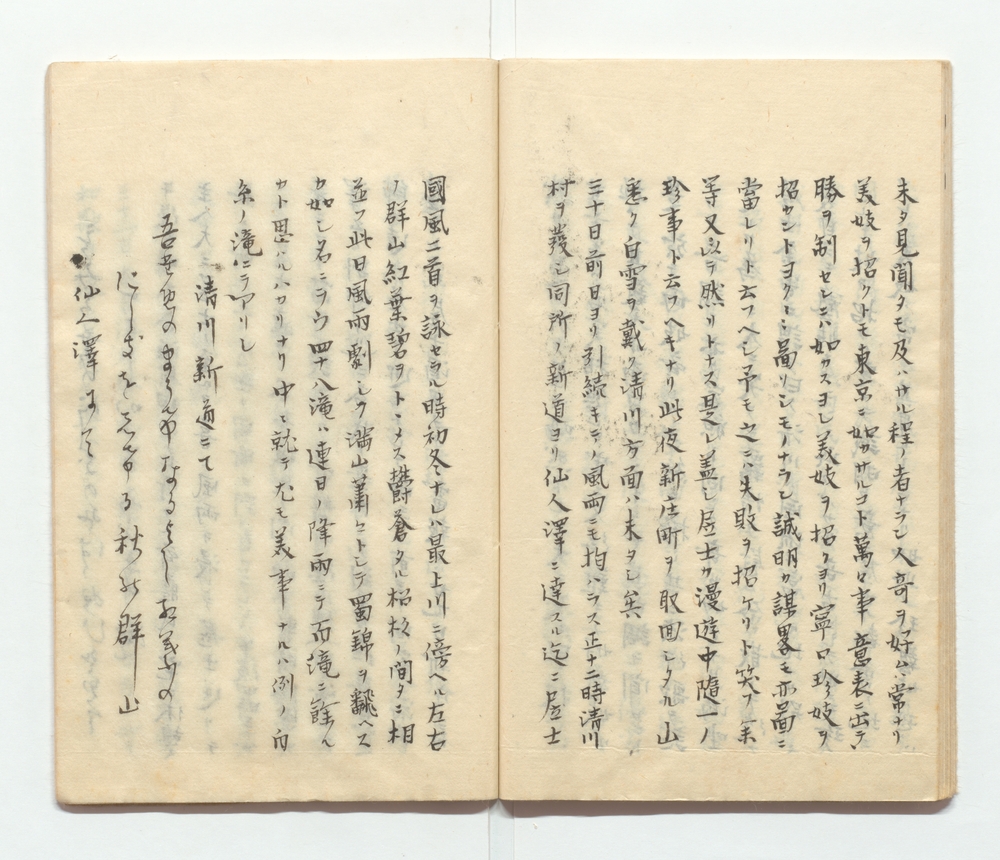 未タ見聞タモ及ハサル程ノ者ナラン人奇ヲ好ムハ常ナリ
美妓ヲ招クトモ東京ニ如カサルコト萬々事意表ニ出テ
勝ヲ制セシニハ如カスヨシ美妓ヲ招クヨリ寧ロ珍妓ヲ
招カントヨクモ圖リシモノナラン誠明カ謀畧モ亦圖ニ
當レリト云フヘシ予モ之ニハ失敗ヲ招ケリト笑フ某
等又以テ然リトナス是レ蓋シ居士カ漫遊中隨一ノ
珍事ト云フヘキナリ此夜新庄町ヲ取囲シタル山
悉ク白雪ヲ戴ク清川方面ハ未タシ矣
三十日前日ヨリ引続キテノ風雨ニモ拘ハラス正十二時清川
村ヲ發シ同所ノ新道ヨリ仙人澤ニ達スル迄ニ居士
國風二首ヲ詠セラル時初冬ナレハ最上川ニ傍ヘル左右
ノ群山紅葉碧ヲトヽメス欝蒼タル松杉ノ間タニ相
並フ此日風雨劇シク満山蕭々トシテ蜀錦ヲ飜ヘス
カ如シ名ニヲウ四十八滝ハ連日ノ降雨ニテ百滝ニ餘ル
カト思ハルハカリナリ中ニ就テ尤モ美事ナルハ例ノ白
糸ノ滝ニテアリシ
清川新道にて
にしきをあらふ秋の群山
仙人澤にて